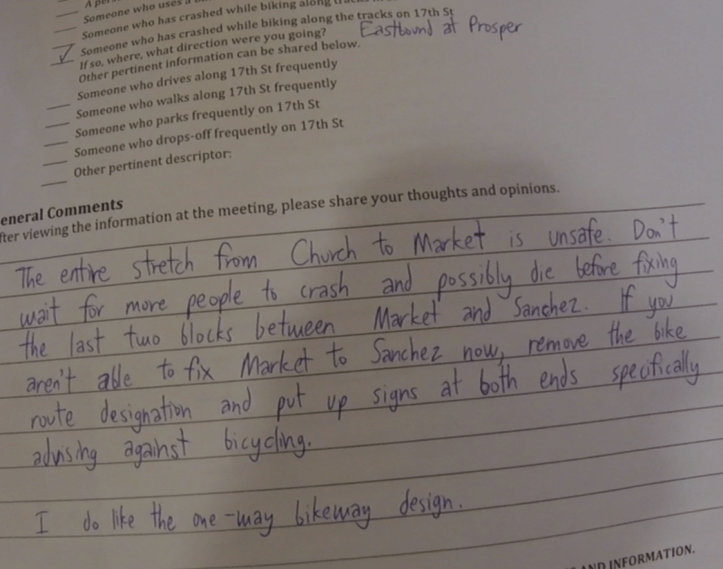 Someone who uses a
Someone who has crashed while biking along
✓ Someone who has crashed while biking along the tracks on 17th St
If so, where, what direction were you going? Eastbound at Prosper
Other pertinent information can be shared below.
Someone who drives along 17th St frequently
Someone who walks along 17th St frequently
Someone who parks frequently on 17th St
Someone who drops-off frequently on 17th St
Other pertinent descriptor:
eneral Comments
fter viewing the information at the meeting, please share your thoughts and opinions.
The entire stretch from Church to Market is unsafe. Don't
wait for more people to crash and possibly die before fixing
the last two blocks between Market and Sanchez. If you
aren't able to fix Market to Sanchez now, remove the bike
route designation and put up signs at both ends specifically
advising against bicycling.
I do like the one-way bikeway design.
AND INFORMATION.